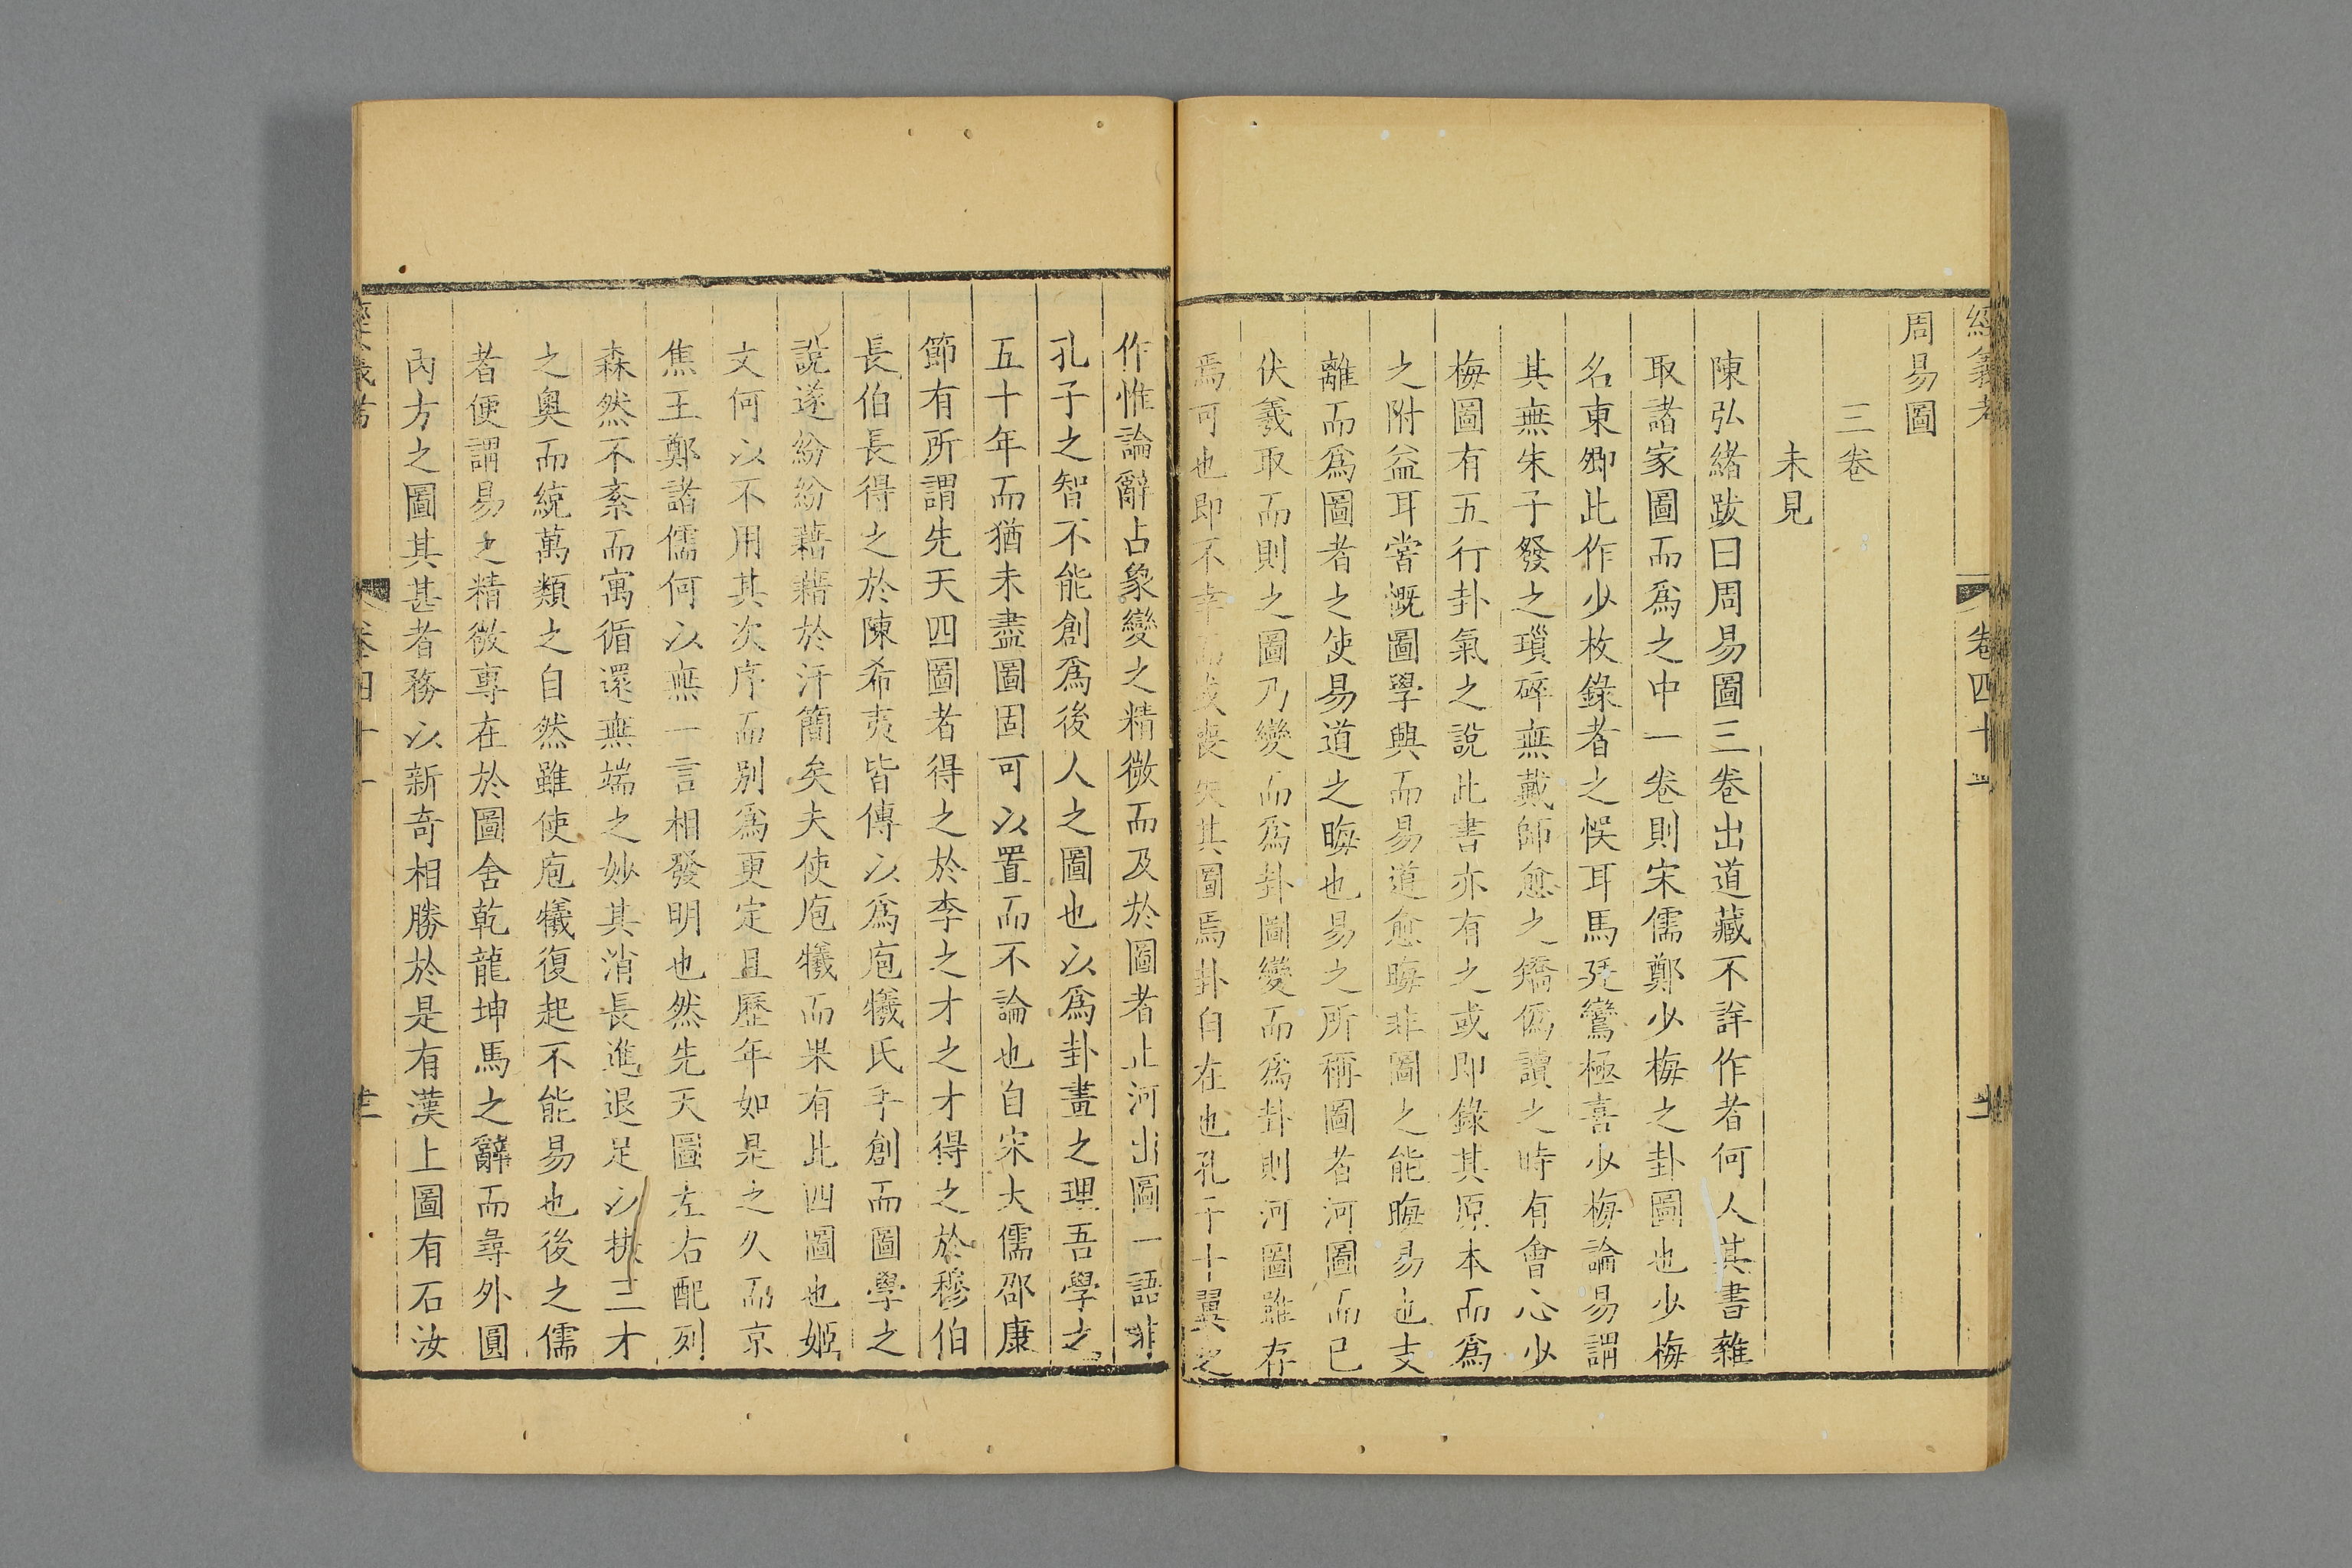 經義考 卷四十一
周易圖
三卷
未見
陳弘緒跋曰周易圖三卷出道藏不詳作者何人其書雜
取諸家圖而爲之中一卷則宋儒鄭少梅之卦圖也少梅
名東卿此作少枚錄者之悞耳馬廷鸞極喜少梅論易謂
其無朱子發之瑣碎無戴師愈之矯僞讀之時有會心少
梅圖有五行卦氣之說此書亦有之或即錄其原本而爲
之附益耳嘗慨圖學興而易道愈晦非圖之能晦易也支
離而爲圖者之使易道之晦也易之所稱圖者河圖而已
伏羲取而則之圖乃變而爲卦圖變而爲卦則河圖雖存
焉可也即不幸而或喪失其圖焉卦自在也孔子十翼之
作惟論辭占象變之精微而及於圖者止河出圖一語非
孔子之智不能創爲後人之圖也以爲卦畫之理吾學之
五十年而猶未盡圖固可以置而不論也自宋大儒邵康
節有所謂先天四圖者得之於李之才之才得之於穆伯
長伯長得之於陳希夷皆傳以爲庖犧氏手創而圖學之
說遂紛紛藉藉於汗簡矣夫使庖犧而果有此四圖也姬
文何以不用其次序而別爲更定且歷年如是之久而京
焦王鄭諸儒何以無一言相發明也然先天圖左右配列
森然不紊而寓循還無端之妙其消長進退足以挾三才
之奧而統萬類之自然雖使庖犧復起不能易也後之儒
者便謂易之精微專在於圖舍乾龍坤馬之辭而尋外圓
內方之圖其甚者務以新奇相勝於是有漢上圖有石汝
經義考 卷四十一